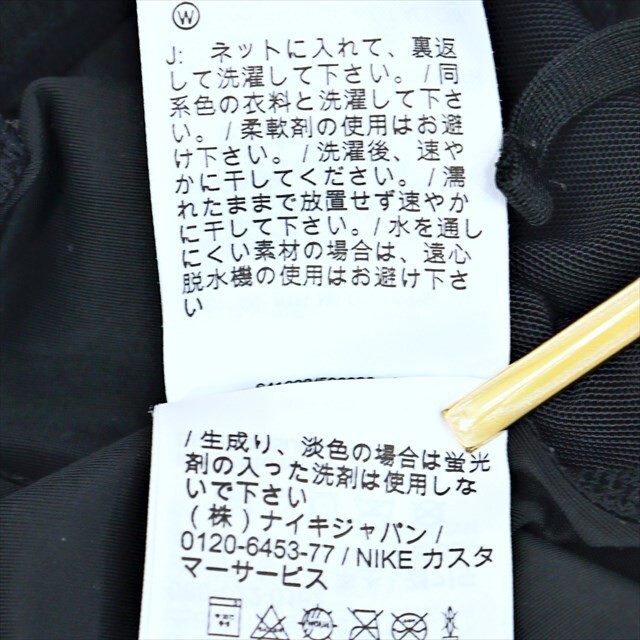 W
J: ネットに入れて、裏返
して洗濯して下さい。/ 同
系色の衣料と洗濯して下さ
い。/ 柔軟剤の使用はお避
け下さい。/ 洗濯後、速や
かに干してください。/ 濡
れたままで放置せず速やか
に干して下さい。/ 水を通し
にくい素材の場合は、遠心
脱水機の使用はお避け下さ
い
/ 生成り、淡色の場合は蛍光
剤の入った洗剤は使用しな
いで下さい
(株) ナイキジャパン /
0120-6453-77 / NIKE カスタ
マーサービス